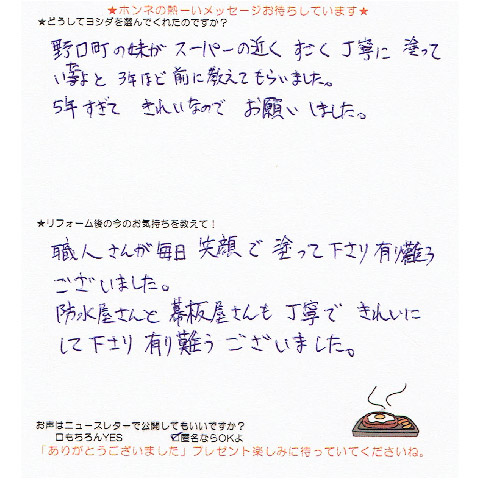 ★ホンネの熱ーいメッセージお待ちしています★
★どうしてヨシダを選んでくれたのですか?
野口町の妹が スーパーの近く すごく 丁寧に 塗って
いるよと 3年ほど前に教えてもらいました。
5年すぎて きれいなので お願いしました。
★リフォーム後の今のお気持ちを教えて!
職人さんが毎日 笑顔で 塗って下さり有り難う
ございました。
防水屋さんと幕板屋さんも 丁寧で きれいに
して下さり 有り難うございました。
お声はニュースレターで公開してもいいですか?
□もちろんYES ☑匿名ならOKよ
「ありがとうございました」プレゼント楽しみに待っていてくださいね。